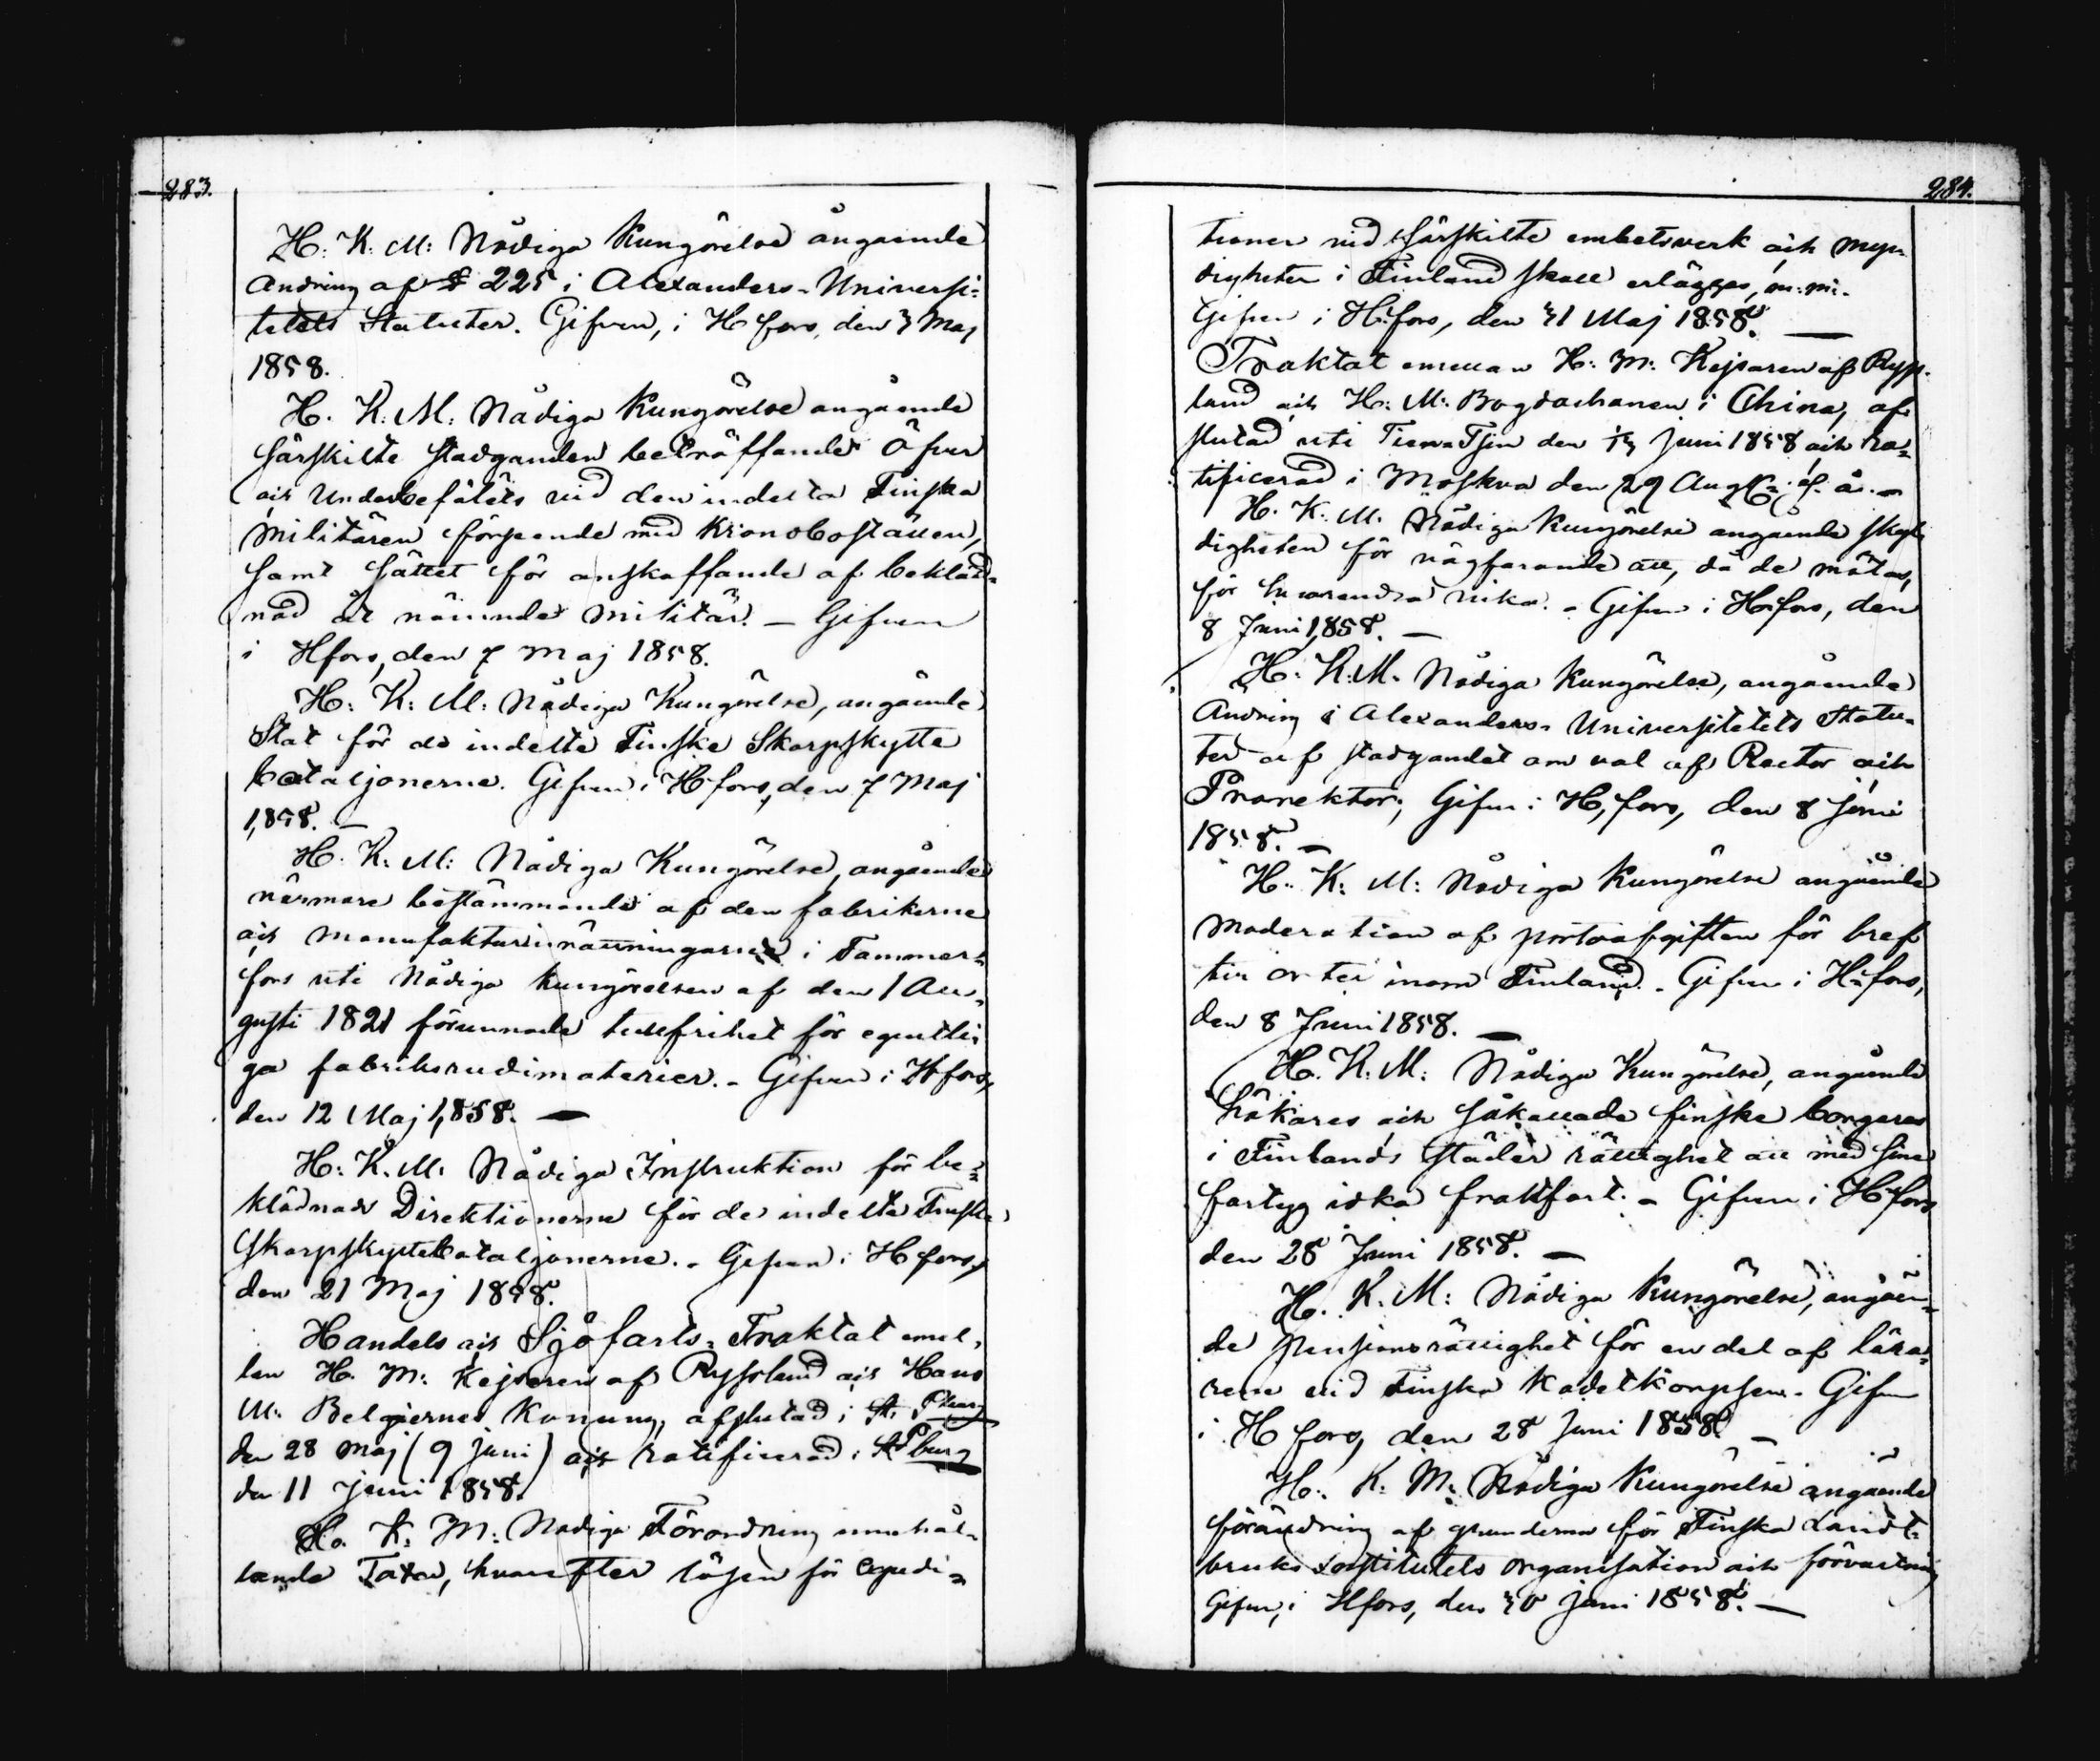 283.
H. K. M: Nådiga Kungörelse ångående
Ändring af § 225 i Alexanders-Universi-
tetets Statuter. Gifven, i Hfors, den 3 Maj
1858.
H. K. M: Nådiga Kungörelse angående
särskilte stadganden beträffande Öfver
och Underbefälets vid den indelta Finska
militären förseende med Kronoboställen,
samt sättet för anskaffande af bekläd-
nad åt nämnde militär. — Gifven
i Hfors, den 7 Maj 1858.
H: K: M: Nådiga Kungörelse, angående
Stat för de indelte Finske Skarpskytte
bataljonerne. Gifven i Hfors, den 7 Maj
1858. —
H. K. M: Nådiga Kungörelse, angående
närmare bestämmande af den fabrikerne
och manufakturinrättningarne i Tammer-
fors uti Nådiga Kungörelsen af den 1 Au-
gusti 1821 förunnade tullfrihet för egentli-
ga fabriksrudimaterier. - Gifven i Hfors,
den 12 Maj 1858. —
H: K. M: Nådiga Instruktion för be-
klädnads Direktionerne för de indelta Finska
Skarpskyttebataljonerne. - Gifven i Hfors,
den 21 Maj 1858.
Handels och Sjöfarts-Traktat emel-
lan H. M: Kejsaren af Ryssland och Hans
M: Belgiernes Konung, afslutad i St. Pburg
den 28 Maj (9 Juni) och ratificerad i St Pburg
den 11 Juni 1858.
H. K. M: Nådiga Förordning innehål-
lande Taxa, hvarefter lösen för expedi-
284.
tioner vid särskilte embetsverk och myn-
digheter i Finland skall erläggas, m. m.
Gifven i H:fors, den 31 Maj 1858. —
Traktat emellan H: M: Kejsaren af Ryss-
land och H: M: Bogdachanen i China, af
slutad uti Tien-Tsin den 1/13 Juni 1858 och ra-
tificerad i Moskva den 29 Aug. s. å. -
H. K. M. Nådiga Kungörelse angående skyl-
digheten för vägfarande att, då de mötas,
för hvarandra vika. - Gifven i H:fors, den
8 Juni 1858. —
H: K. M. Nådiga Kungörelse, angående
Ändring i Alexanders-Universitetets Statu-
ter af stadgandet om val af Rector och
Prorektor; Gifven i H,fors, den 8 Juni
1858. —
H: K: M: Nådiga Kungörelse angående
moderation af portoafgiften för bref
till orter inom Finland. - Gifven i H:fors,
den 8 Juni 1858. —
H. K. M: Nådiga Kungörelse, angående
hökares och såkallade finske borgares
i Finlands städer rättighet att med sine
fartyg idka fraktfart. - Gifven i H:fors
den 28 Juni 1858. —
H. K. M: Nådiga Kungörelse, angåen-
de pensionsrättighet för en del af lära-
rene vid Finska Kadettkorpsen. Gifven
i H fors, den 28 Juni 1858. —
H. K: M: Nådiga Kungörelse angående
förändring af grunderna för Finska Landt-
bruks Institutets organisation och förvaltning
Gifven, i Hfors, den 30 Juni 1858. —